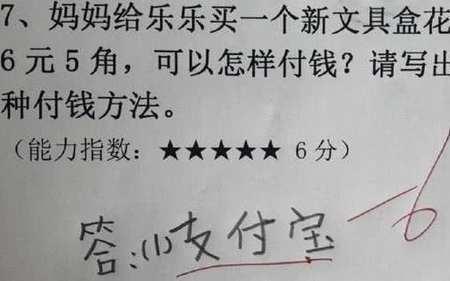 7、妈妈给乐乐买一个新文具盒花
6元5角，可以怎样付钱？请写出
种付钱方法。
（能力指数：★★★★★ 6分）
答:(1)支付宝 -6